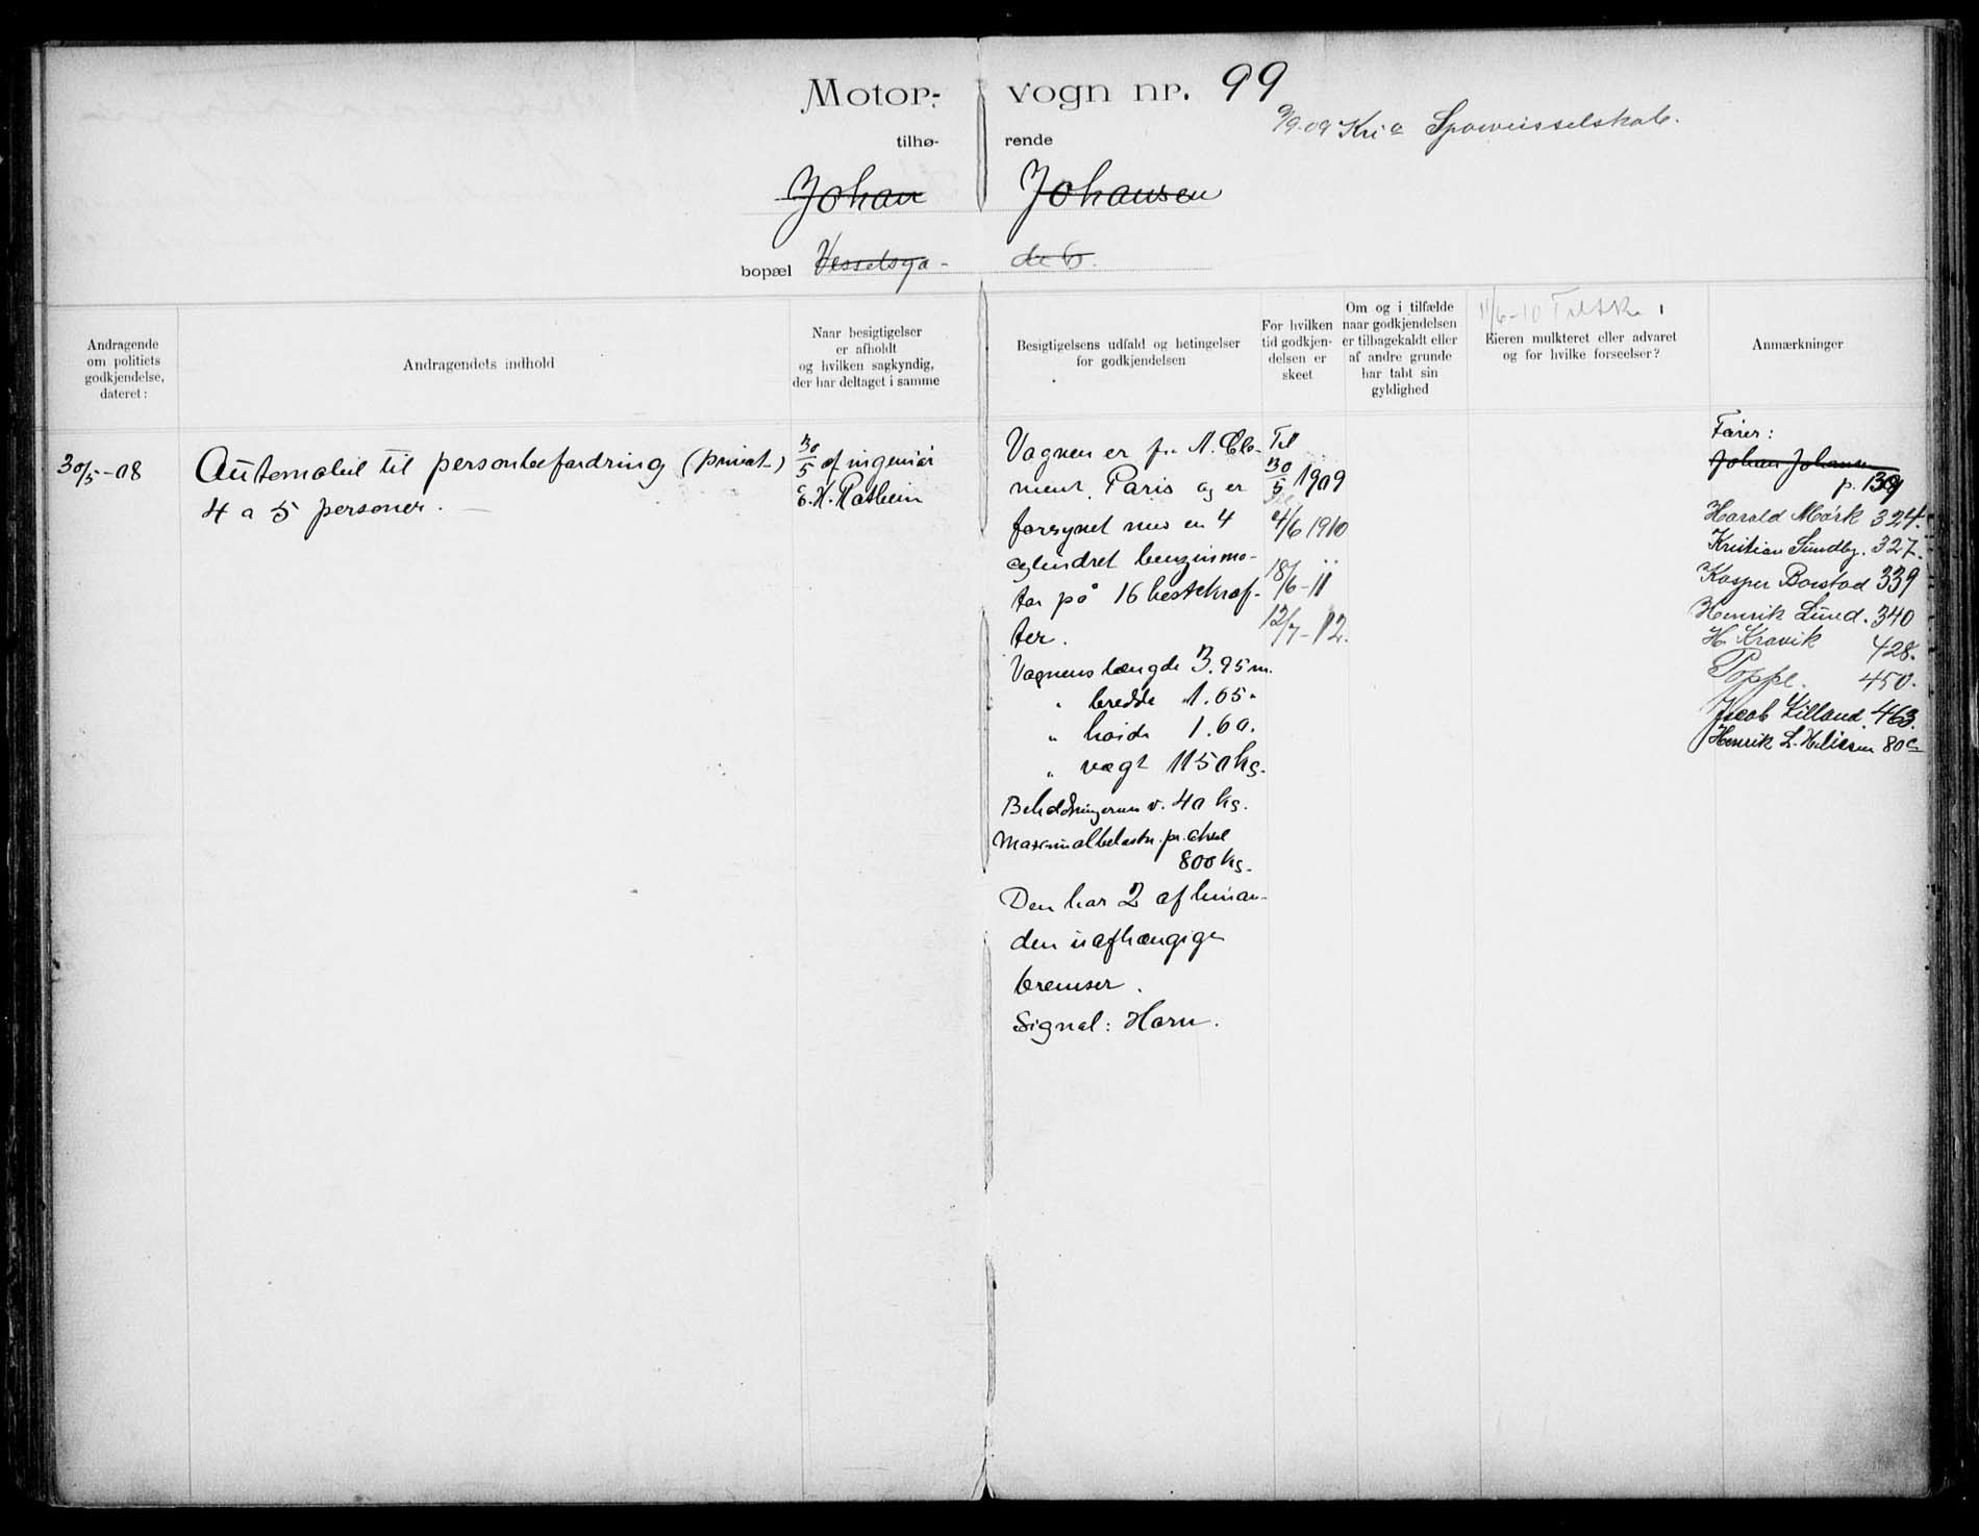 Motor- vogn nr. 99
9/9.09 Kri a Sporveisselskab.
tilhø- rende
Johan Johansen
bopæl Vesselsga- de 6.
Andragende
om politiets
godkjendelse,
dateret:
Andragendets indhold
Naar besigtigelser
er afholdt
og hvilken sagkyndig,
der har deltaget i samme
Besigtigelsens udfald og betingelser
for godkjendelsen
For hvilken
tid godkjen-
delsen er
skeet
Om og i tilfælde
naar godkjendelsen
er tilbagekaldt eller
af andre grunde
har tabt sin
gyldighed
11/6-10
Eieren mulkteret eller advaret
og for hvilke forseelser?
Anmærkninger
30/5-08
Automobil til personbefordring (privat)
4 a 5 personer.
30/5 af ingeniør
E. H. Rathein
Vognen er fra A. Cle-
ment, Paris og er
forsynet med en 4
cylindret benzinmo-
tor på 16 hestekræf-
ter.
Vognens længde 3.95 m.
" bredde 1.65 "
" høide 1.60.
" vægt 1150 kg.
Beholdningerum v. 40 kg.
Maximalbelastn. pr. aksel
800 kg.
Den har 2 af hinan-
den uafhængige
bremser.
Signal: Horn.
Til
30/5 1909
4/6 1910
18/6-11
12/7-12.
Fører:
Johan Johansen
p. 139
Harald Mørk 324.
Kristian Sundby. 327.
Kasper Borstad 339
Henrik Lund. 340
H. Kravik 428.
Poppe. 450.
Jacob Lilland. 463.
Henrik L. 80